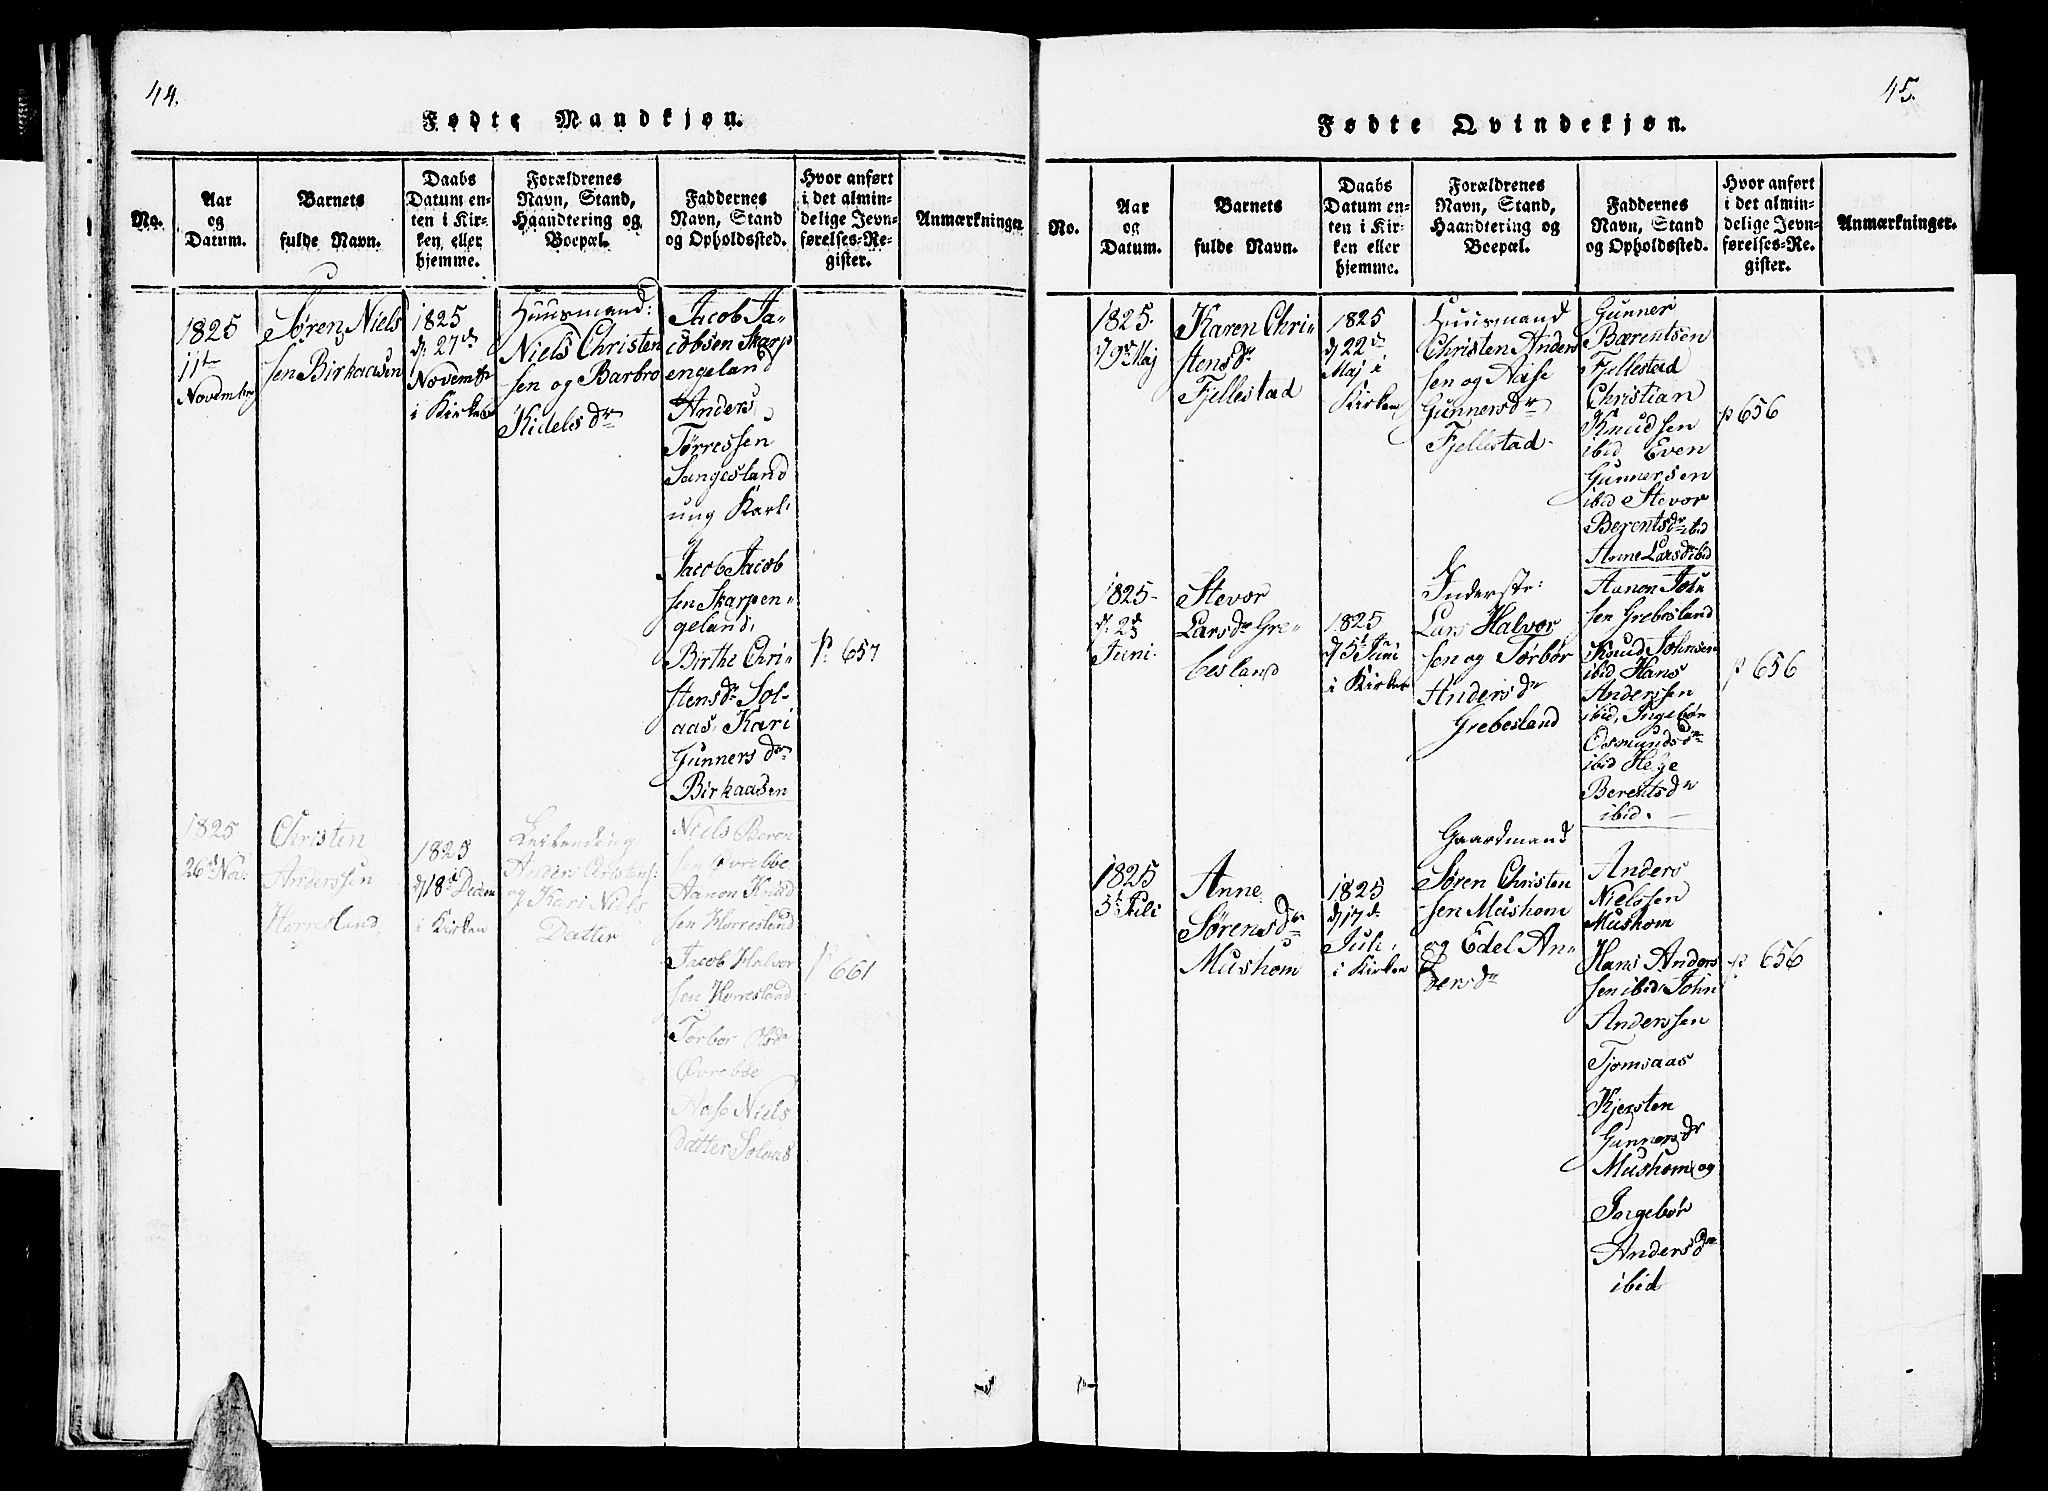 44.
Fødte Mandkjøn.
No.
Aar
og
Datum.
Barnets
fulde Navn.
Daabs
Datum en-
ten i Kir-
ken eller
hjemme.
Forældrenes
Navn, Stand,
Haandtering og
Boepæl.
Faddernes
Navn, Stand
og Opholdssted.
Hvor anført
i det almin-
delige Jevn-
førelses-Re-
gister.
Anmærkninger
1825
11te
Novembr
Søren Niels
sen Birkaasen
1825
d. 27de
Novembr
i Kirken
Huusmand:
Niels Christen
sen og Barbro
Kidelsdr
Jacob Ja-
cobsen Skarp
engeland
Anders
Tørressen
Sangesland
ung Karl.
Jacob Jacob
sen Skarpen-
geland,
Birthe Chri-
stensdr Sol-
aas, Kari
Gunnersdr
Birkaasen
p. 657
1825
26de Nov:
Christen
Anderssen
Horresland
1825
d. 18de Decem
i Kirken
Anders Christens:
og Kari Niels
Datter
Niels Beren
sen Øvrebøe
Aanon Knud
sen Horresland
Jacob Halvor
sen Horresland
Torbor Olsdr
Øvrebøe
Aase Niels
datter Solaas
p 661
45.
Fødte Qvindekjøn.
No.
Aar
og
Datum.
Barnets
fulde Navn.
Daabs
Datum en-
ten i Kir-
ken eller
hjemme.
Forældrenes
Navn, Stand,
Haandtering og
Boepæl.
Faddernes
Navn, Stand
og Opholdssted.
Hvor anført
i det almin-
delige Jevn-
førelses-Re-
gister.
Anmærkninger.
1825.
d. 9de Maj
Karen Chri-
stensdr
Fjellestad
1825
d. 22de
Maj i
Kirken
Huusmand
Christen Anders
sen og Aase
Gunnersdr
Fjellestad.
Gunner
Bærentsen
Fjellestad
Christian
Knudsen
ibid Even
Gunnersen
ibid Stevor
Berentsdr ibid
Anne Larsdr ibid
p 656
1825
d. 2de
Juni.
Stevor
Larsdr Gre-
besland
1825
d. 5te Juni
i Kirken
Inderste:
Lars Halvor
sen og Torbør
Andersdr
Grebesland
Aanon John
sen Grebesland
Knud Johnsen
ibid Hans
Anderssen
ibid, Ingebør
Osmundsdr
ibid Hege
Berentsdr
ibid.
p 656
1825
3de Juli
Anne
Sørensdr
Mushom
1825
d. 17de
Juli,
i Kirken
Gaardmand
Søren Christen
sen Mushom
og Edel An-
dersdr
Anders
Nielssen
Mushom
Hans Anders
sen ibid, John
Anderssen
Tjomsaas
Kjersten
Gunnersdr
Mushom, og
Ingebør
Andersdr
ibid
p 656